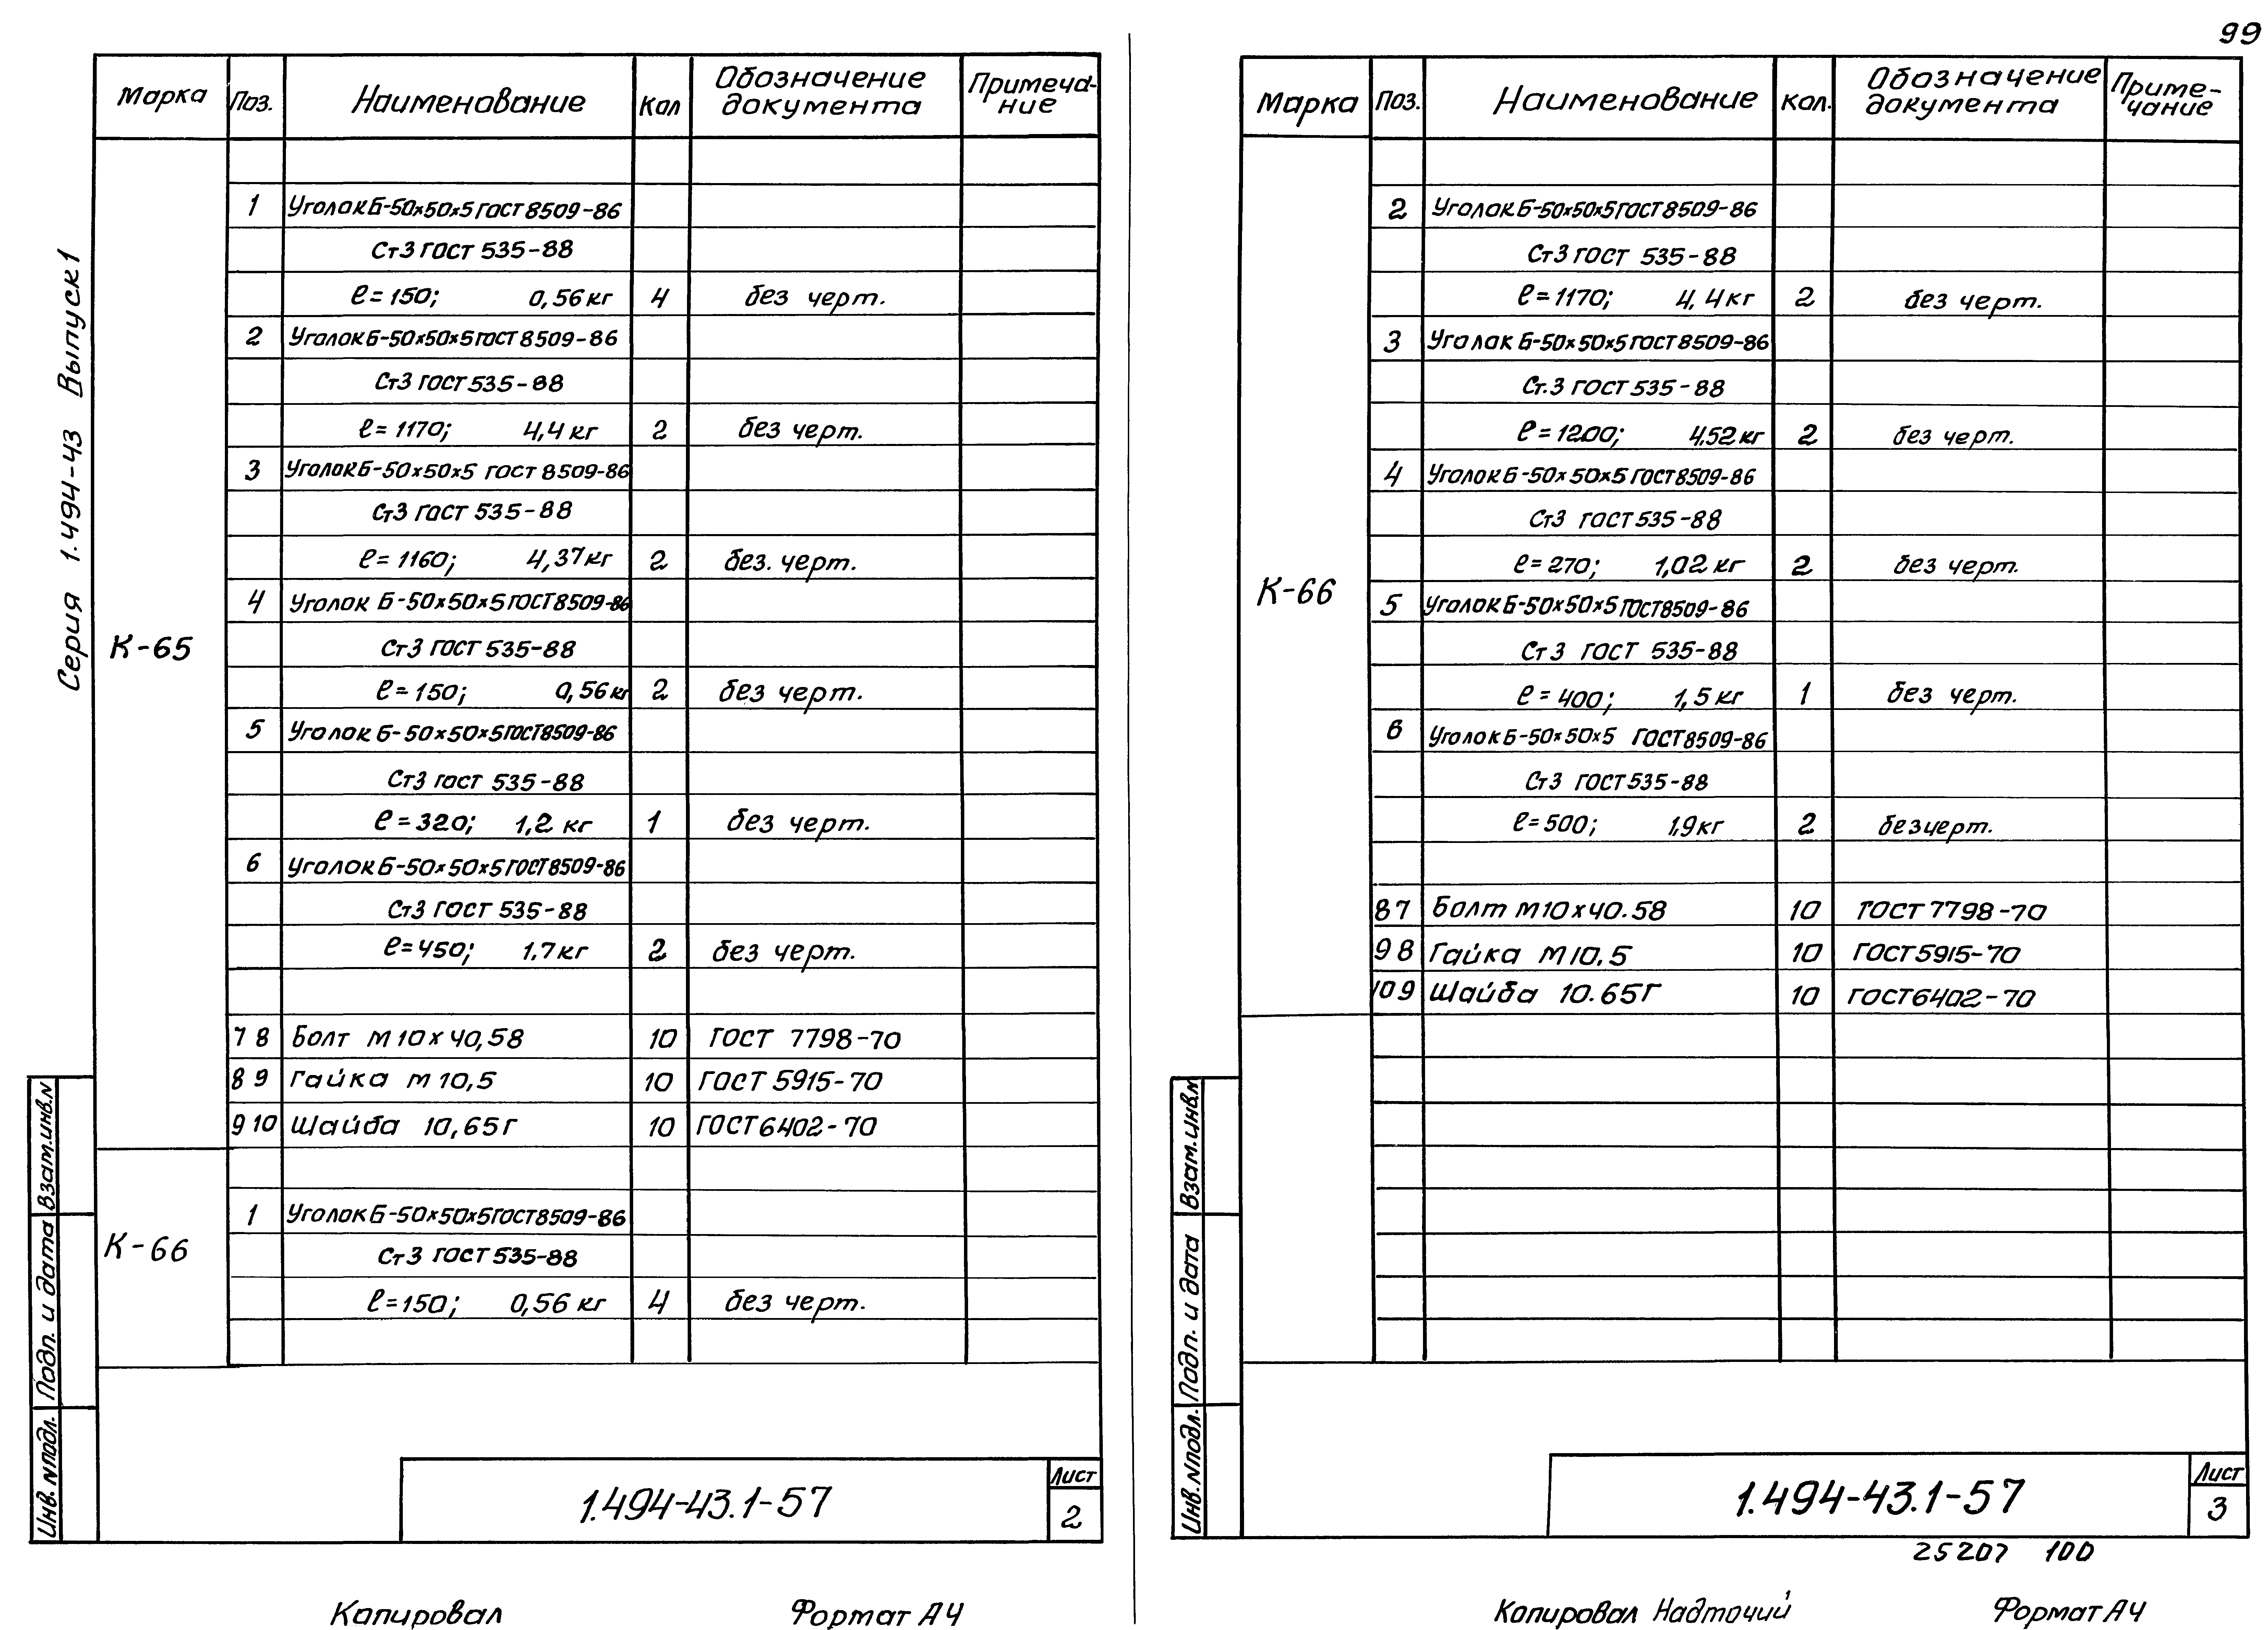 99
Серия 1.494-43 Выпуск 1
Марка Поз. Наименование Кол Обозначение документа Примеча-ние
К-65
1 Уголок Б-50х50х5 ГОСТ 8509-86
Ст3 ГОСТ 535-88
ℓ=150; 0,56 кг 4 без черт.
2 Уголок Б-50х50х5 ГОСТ 8509-86
Ст3 ГОСТ 535-88
ℓ=1170; 4,4 кг 2 без черт.
3 Уголок Б-50х50х5 ГОСТ 8509-86
Ст3 ГОСТ 535-88
ℓ=1160; 4,37 кг 2 без. черт.
4 Уголок Б-50х50х5 ГОСТ 8509-86
Ст3 ГОСТ 535-88
ℓ=150; 0,56 кг 2 без черт.
5 Уголок Б-50х50х5 ГОСТ 8509-86
Ст3 ГОСТ 535-88
ℓ=320; 1,2 кг 1 без черт.
6 Уголок Б-50х50х5 ГОСТ 8509-86
Ст3 ГОСТ 535-88
ℓ=450; 1,7 кг 2 без черт.
7 8 Болт М10х40,58 10 ГОСТ 7798-70
8 9 Гайка М10,5 10 ГОСТ 5915-70
9 10 Шайба 10,65Г 10 ГОСТ 6402-70
К-66
1 Уголок Б-50х50х5 ГОСТ 8509-86
Ст3 ГОСТ 535-88
ℓ=150; 0,56 кг 4 без черт.
Взам.инв.N
Подп. и дата
Инв. N подл.
1.494-43.1-57
Лист
2
Копировал Формат А4
Марка Поз. Наименование Кол. Обозначение документа Приме-чание
К-66
2 Уголок Б-50х50х5 ГОСТ 8509-86
Ст3 ГОСТ 535-88
ℓ=1170; 4,4 кг 2 без черт.
3 Уголок Б-50х50х5 ГОСТ 8509-86
Ст.3 ГОСТ 535-88
ℓ=1200; 4,52 кг 2 без черт.
4 Уголок Б-50х50х5 ГОСТ 8509-86
Ст3 ГОСТ 535-88
ℓ=270; 1,02 кг 2 без черт.
5 Уголок Б-50х50х5 ГОСТ 8509-86
Ст3 ГОСТ 535-88
ℓ=400; 1,5 кг 1 без черт.
6 Уголок Б-50х50х5 ГОСТ 8509-86
Ст3 ГОСТ 535-88
ℓ=500; 1,9 кг 2 без черт.
8 7 Болт М10х40.58 10 ГОСТ 7798-70
9 8 Гайка М10,5 10 ГОСТ 5915-70
10 9 Шайба 10.65Г 10 ГОСТ 6402-70
Взам.инв.N
Подп. и дата
Инв. N подл.
1.494-43.1-57
Лист
3
25207 100
Копировал Надточий Формат А4